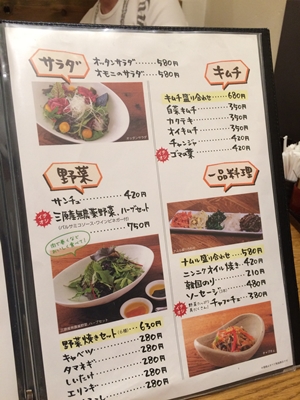 サラダ
オッタンサラダ ...... 580円
オモニのサラダ ...... 580円
キムチ
キムチ盛り合わせ ... 680円
白菜キムチ ...... 350円
カクテキ ...... 350円
オイキムチ ...... 350円
チャンジャ ...... 420円
ゴマの葉 ...... 420円
野菜
サンチュ ...... 420円
三原無農薬野菜、ハーブセット
(バルサミコソース・ワインビネガー付)
...... 750円
野菜焼きセット ...... 630円
キャベツ ...... 280円
タマネギ ...... 280円
しいたけ ...... 280円
エリンギ ...... 280円
280円
一品料理
ナムル盛り合わせ ... 580円
ニンニクオイル焼き ... 420円
韓国のり ...... 210円
ソーセージ ...... 480円
チャプチェ ...... 380円